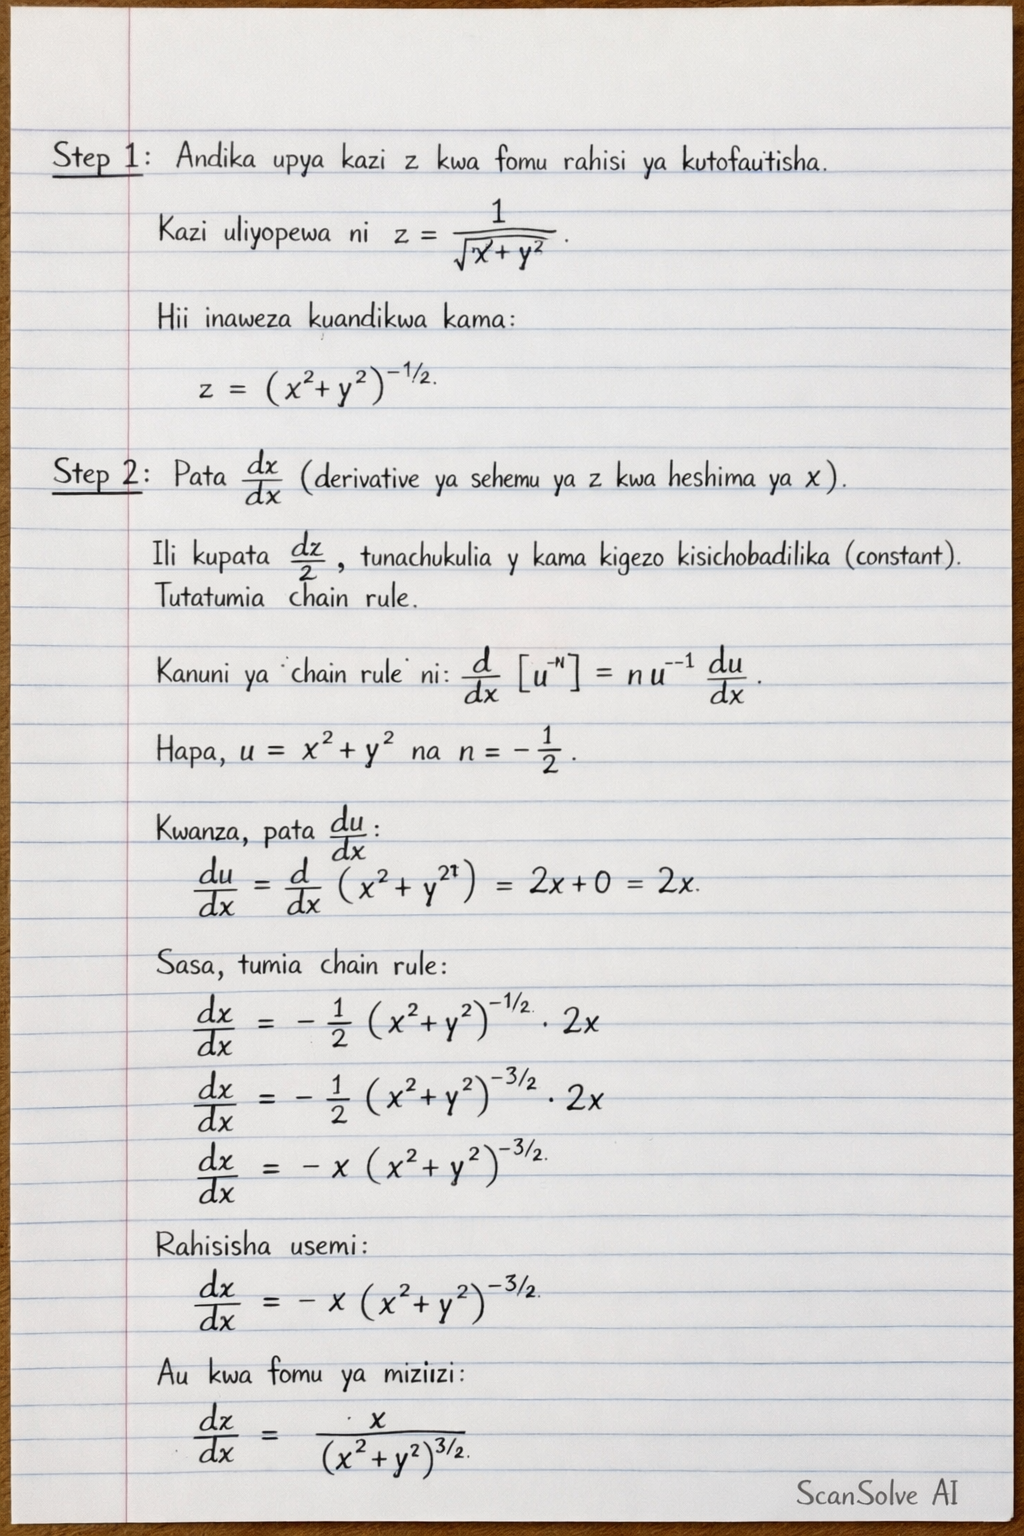 Step 1: Andika upya kazi z kwa fomu rahisi ya kutofautisha.
Kazi uliyopewa ni z = 1/√(x + y²).
Hii inaweza kuandikwa kama:
z = (x² + y²)^(-1/2).
Step 2: Pata dx/dx (derivative ya sehemu ya z kwa heshima ya x).
Ili kupata dz/2, tunachukulia y kama kigezo kisichobadilika (constant).
Tutatumia chain rule.
Kanuni ya 'chain rule' ni: d/dx [u^(-N)] = n u^(--1) du/dx.
Hapa, u = x² + y² na n = -1/2.
Kwanza, pata du/dx:
du/dx = d/dx (x² + y^(2τ)) = 2x + 0 = 2x.
Sasa, tumia chain rule:
dx/dx = - 1/2 (x² + y²)^(-1/2) · 2x
dx/dx = - 1/2 (x² + y²)^(-3/2) · 2x
dx/dx = - x (x² + y²)^(-3/2).
Rahisisha usemi:
dx/dx = - x (x² + y²)^(-3/2).
Au kwa fomu ya miziizi:
dz/dx = x/(x² + y²)^(3/2).
ScanSolve AI